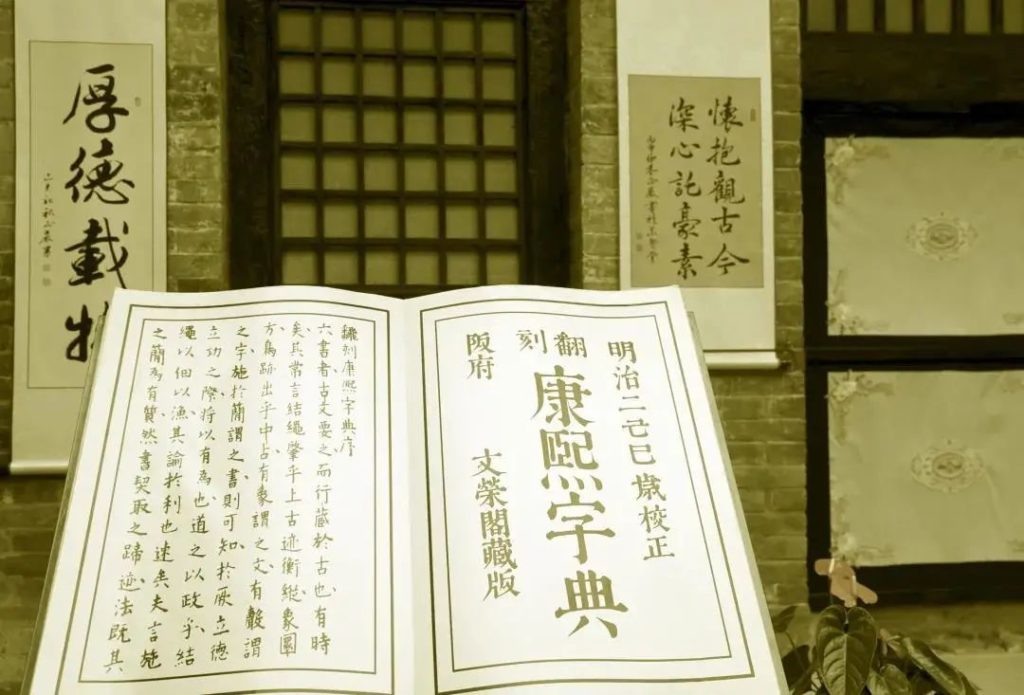 厚德載物
懷抱觀古今
深心託豪素
明治二己巳歲校正
翻刻
康熙字典
阪府
文榮閣藏版
繙刻康熙字典序
六書者古文要之而行藏於古也有時
矣其常言結繩肇乎上古迹衡縱象圜
方鳥跡出乎中占有象謂之文有觳謂
之字施於簡謂之書則可知於厥立德
立功之際將以有為也道之以政乎結
繩以佃以漁其論於利也速矣夫言施
之簡為有質然書契取之蹄迹法既其